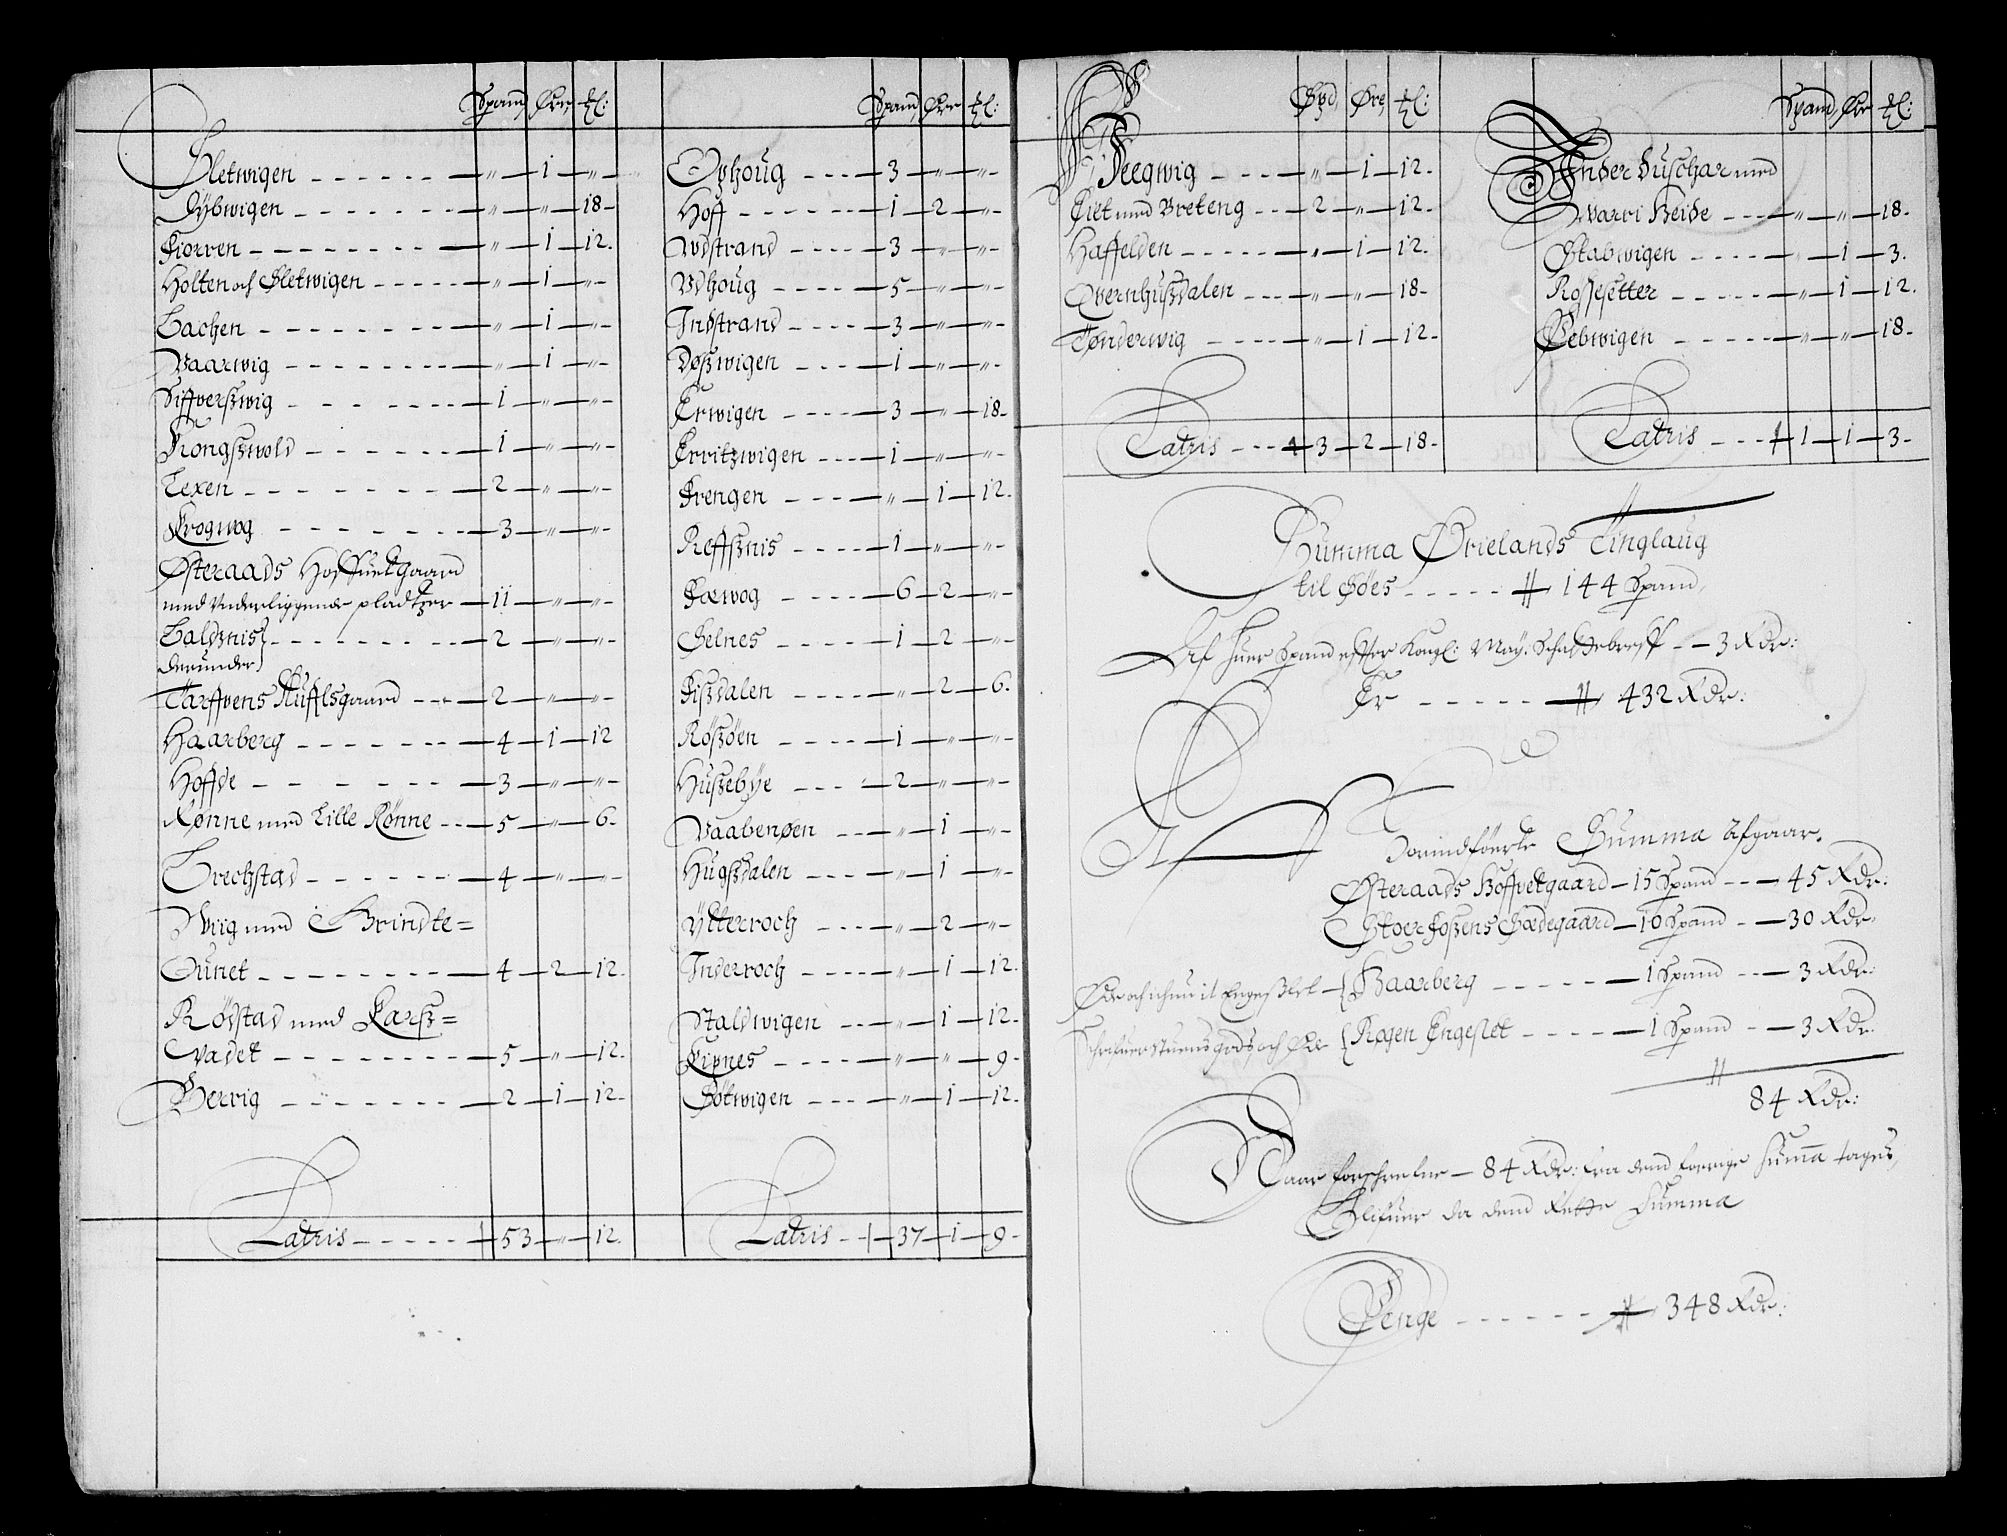 Spand, Ører, ℔:
Sletwigen - - - - - - „ 1 „
Dÿbwigen - - - - - - „ „ 18
Kiorren - - - - - - „ 1 12.
Holten och Sletwigen - - - - „ 1 „
Bachen - - - - - - „ 1 „
Vaarwig - - - - - - „ 1 „
Siffverßwig - - - - - - 1 „ „
Kongßwold - - - - - - 1 „ „
Texen - - - - - - 2 „ „
Krogwog - - - - - - 3 „ „
Østeraads Hoffuetgaard
med Vnderliggende pladtzer 11 „ „
Baldznis - - - - - - 2 „ „
derunder
Tarffvens Rufflsgaard - - - 2 „ „
Haarberg - - - - - - 4 1 12
Hoffde - - - - - - 3 „ „
Rønne med Lille Rønne - - 5 „ 6
Brechstad - - - - - - 4 „ „
Wiig med Grindte=
Tunet - - - - - - 4 2 12.
Rödstad med Karß=
Vadet - - - - - - 5 „ 12.
Berrig - - - - - - 2 1 12
Latris - - - - - 53 „ 12.
Spand, Ører ℔:
Ophoug - - - - 3 „ „
Hoff - - - - - - 1 2 „
Vdstrand - - - - 3 „ „
Vdhoug - - - - 5 „ „
Indstrand - - - - 3 „ „
Voßwigen - - - - 1 „ „
Erwigen - - - - 3 „ 18
Ervitzwigen - - - 1 „ „
Krengen - - - - „ 1 12.
Reffßnis - - - - 1 „ „
Kæwog - - - - - 6 2 „
Selnes - - - - - 1 2 „
Fißdalen - - - - „ 2 6.
Rößöen - - - - 1 „ „
Hußebÿe - - - 2 „ „
Vaabenøen - - - „ 1 „
Hugßdalen - - - - „ 1 „
Ÿtterroch - - - „ 2 „
Inderroch - - - - „ 1 12.
Staldwigen - - - „ 1 12.
Lipnes - - - - - „ „ 9
Bötwigen - - - - „ 1 12.
Latris - - 37 1 9
Spd, Øre, ℔:
Teegwig - - - - „ 1 12.
Fiet med Breteng - - 2 „ 12
Haffelden - - - - - „ 1 12.
Overnhußdalen - - - „ „ 18
Tønderwig - - - - - „ 1 12.
Latris - - - 3 2 18
Spand, Ører ℔:
Inder Duschar med
Warri Heide - - - - „ „ 18.
Stabwigen - - - - „ 1 3.
Rossesetter - - - - - „ 1 12.
Bebwigen - - - - - „ „ 18
Latris - - - 1 1 3
Summa Ørielands Tinglaug
til Söes - - - - - 144 Spand,
Af huer Spand efter Kongl: May: Schattebreff - - 3 Rdr:
Er - - - - - 432 Rdr:
Af
Forindföerte Summa Afgaar.
Østeraads Hoffvetgaard 15 Spand - - 45 Rdr:
Stoer Foßens Sædegaard 10 Spand - - 30 Rdr.
Øde och ichun it Engeslet Haarberg - - - - - 1 Spand - - 3 Rdr:
gods och Øde Krogen Engeslet - - - - 1 Spand - - 3 Rdr.
84 Rdr:
Naar forschrefne 84 Rdr: fra dend forrige Suma tages,
Blifuer da dend Rette Summa
Penge - - - - - - 348 Rdr: